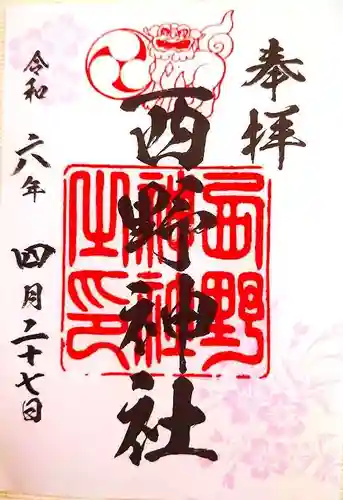 奉拝
西野神社
西野神社之印
令和六年四月二十七日